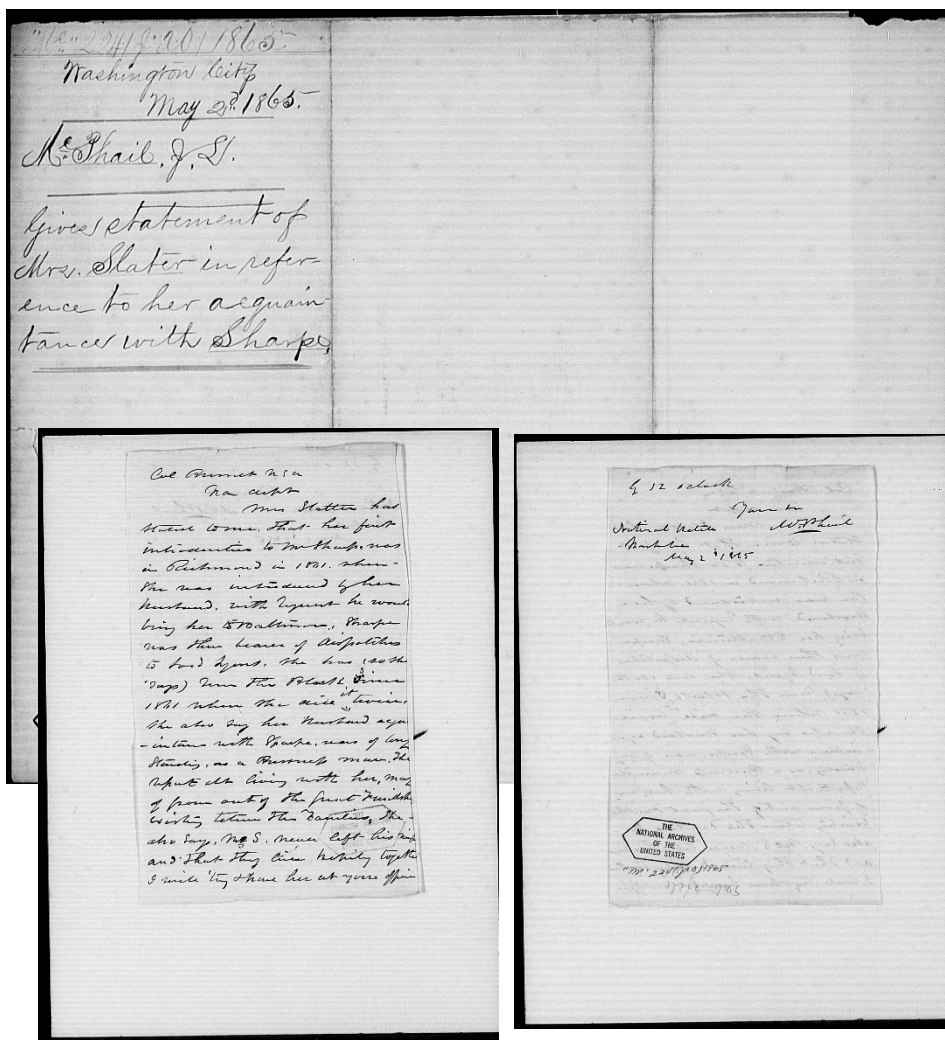 "Mc" 224 (J.A.O.) 1865.
Washington City
May 2d. 1865.
McPhail, J. L.
Gives statement of
Mrs. Slater in refer-
ence to her acquain
tance with Sharpe.
Col Burnett
War dept
Mrs Slatter has
stated to me, that her first
introduction to Mr Sharpe, was
in Richmond in 1861. when
she was introduced by her
Husband. with request he would
bring her to Baltimore, Sharpe
was then bearer of dispatches
to Lord Lyons. she has (so she
says) run the Block since
1861 when she
it
twice.
She also say her Husband acqu
-intance with Sharpe, was of long
standing, as a Business man. The
report abt living with her, may
of grown out of the great Friendship
existing between the Families, She
also says, Mr S. never left his wife
and that they live together
I will try & have her at your office
by 12 oclock
Yours
McPhail
National Hotel
Washn
May 2d 1865
THE
NATIONAL ARCHIVES
OF THE
UNITED STATES